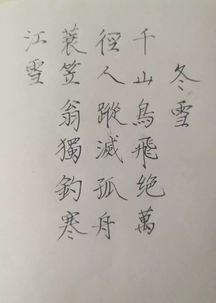 冬雪
千山鳥飛絕萬
徑人蹤滅孤舟
蓑笠翁獨釣寒
江雪